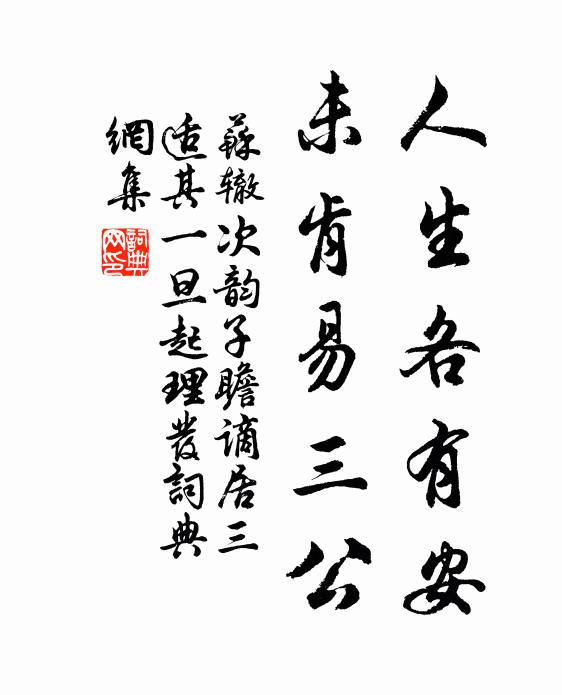 人生各有安
未肯易三公
蘇辙次韵子瞻谪居三
适其一旦起理發詞典
網集
詞典網印